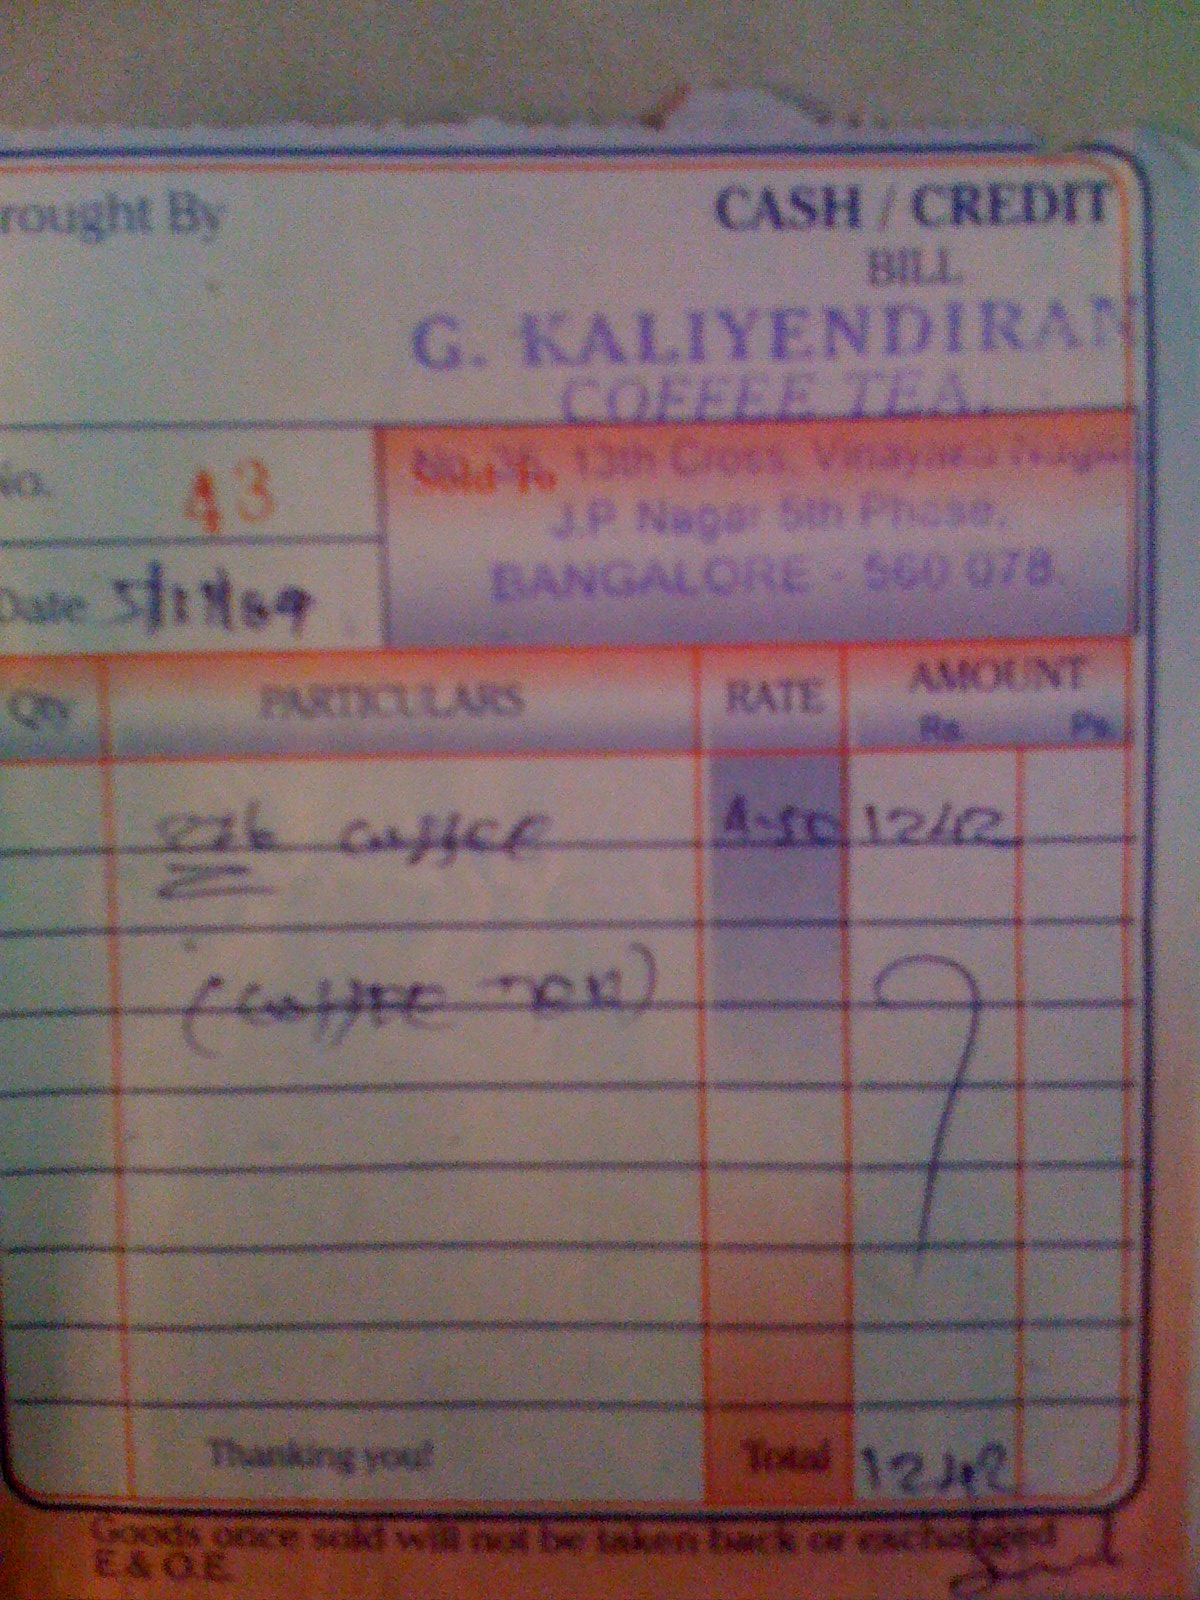 rought By
CASH / CREDIT
BILL
G. KALIYENDIRAN
COFFEE TEA.
No. 43
Sold To
No. 36, 13th Cross, Vinayaka Nagar
J.P. Nagar 5th Phase,
BANGALORE - 560 078.
Date
Qty PARTICULARS RATE AMOUNT
Rs. Ps.
276 COFFEE 4-50 1242
(COFFEE
Thanking you! Total 1242
Goods once sold will not be taken back or exchanged
E. & O.E.